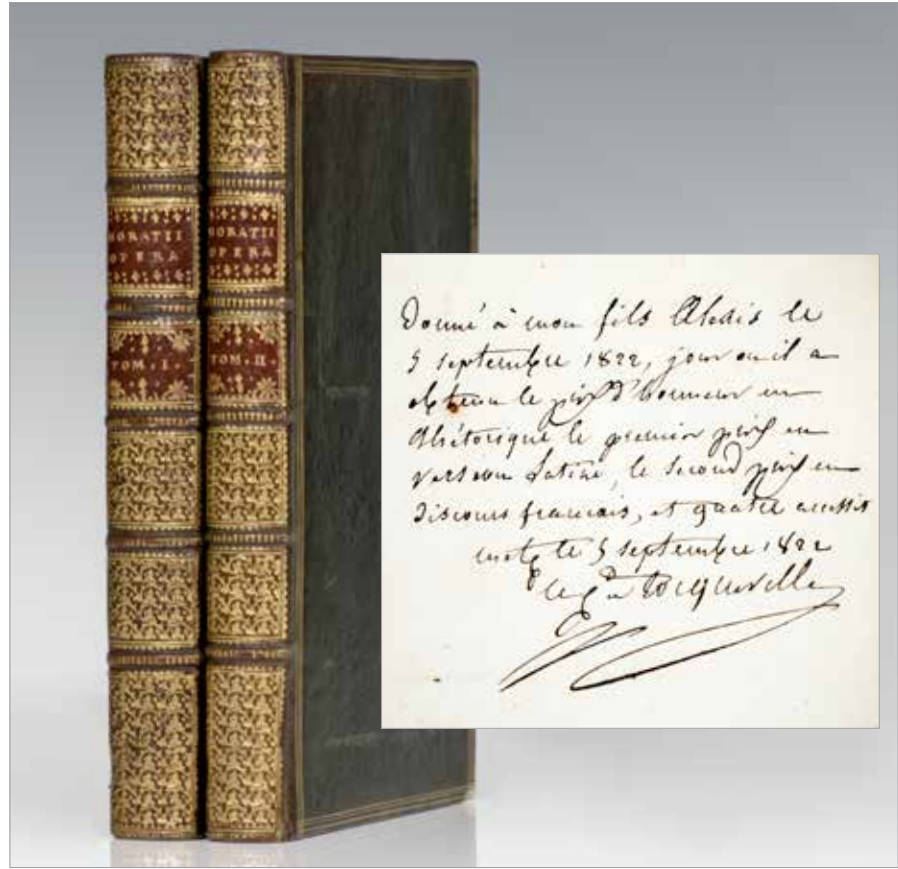 HORATII
OPERA
TOM. I.
HORATII
OPERA
TOM. II.
Donné à mon fils Alexis le
5 septembre 1822, jour ou il a
obtenu le prix d'honneur en
Rhétorique le premier prix en
version Latine, le second prix en
discours francais, et quatre accessit
metz le 5 septembre 1822
le Cte de Tocqueville